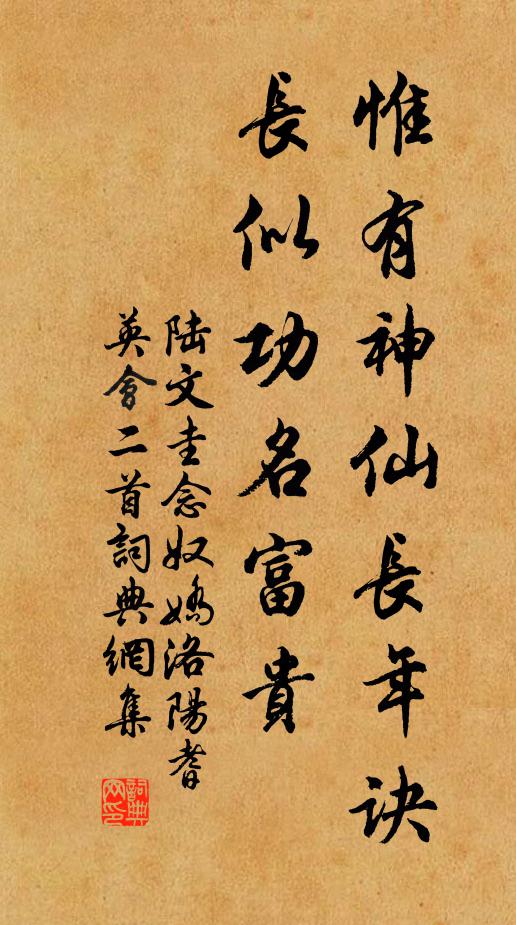 惟有神仙長年訣
長似功名富貴
陆文圭念奴嬌洛陽耆
英會二首詞典網集
詞典网印